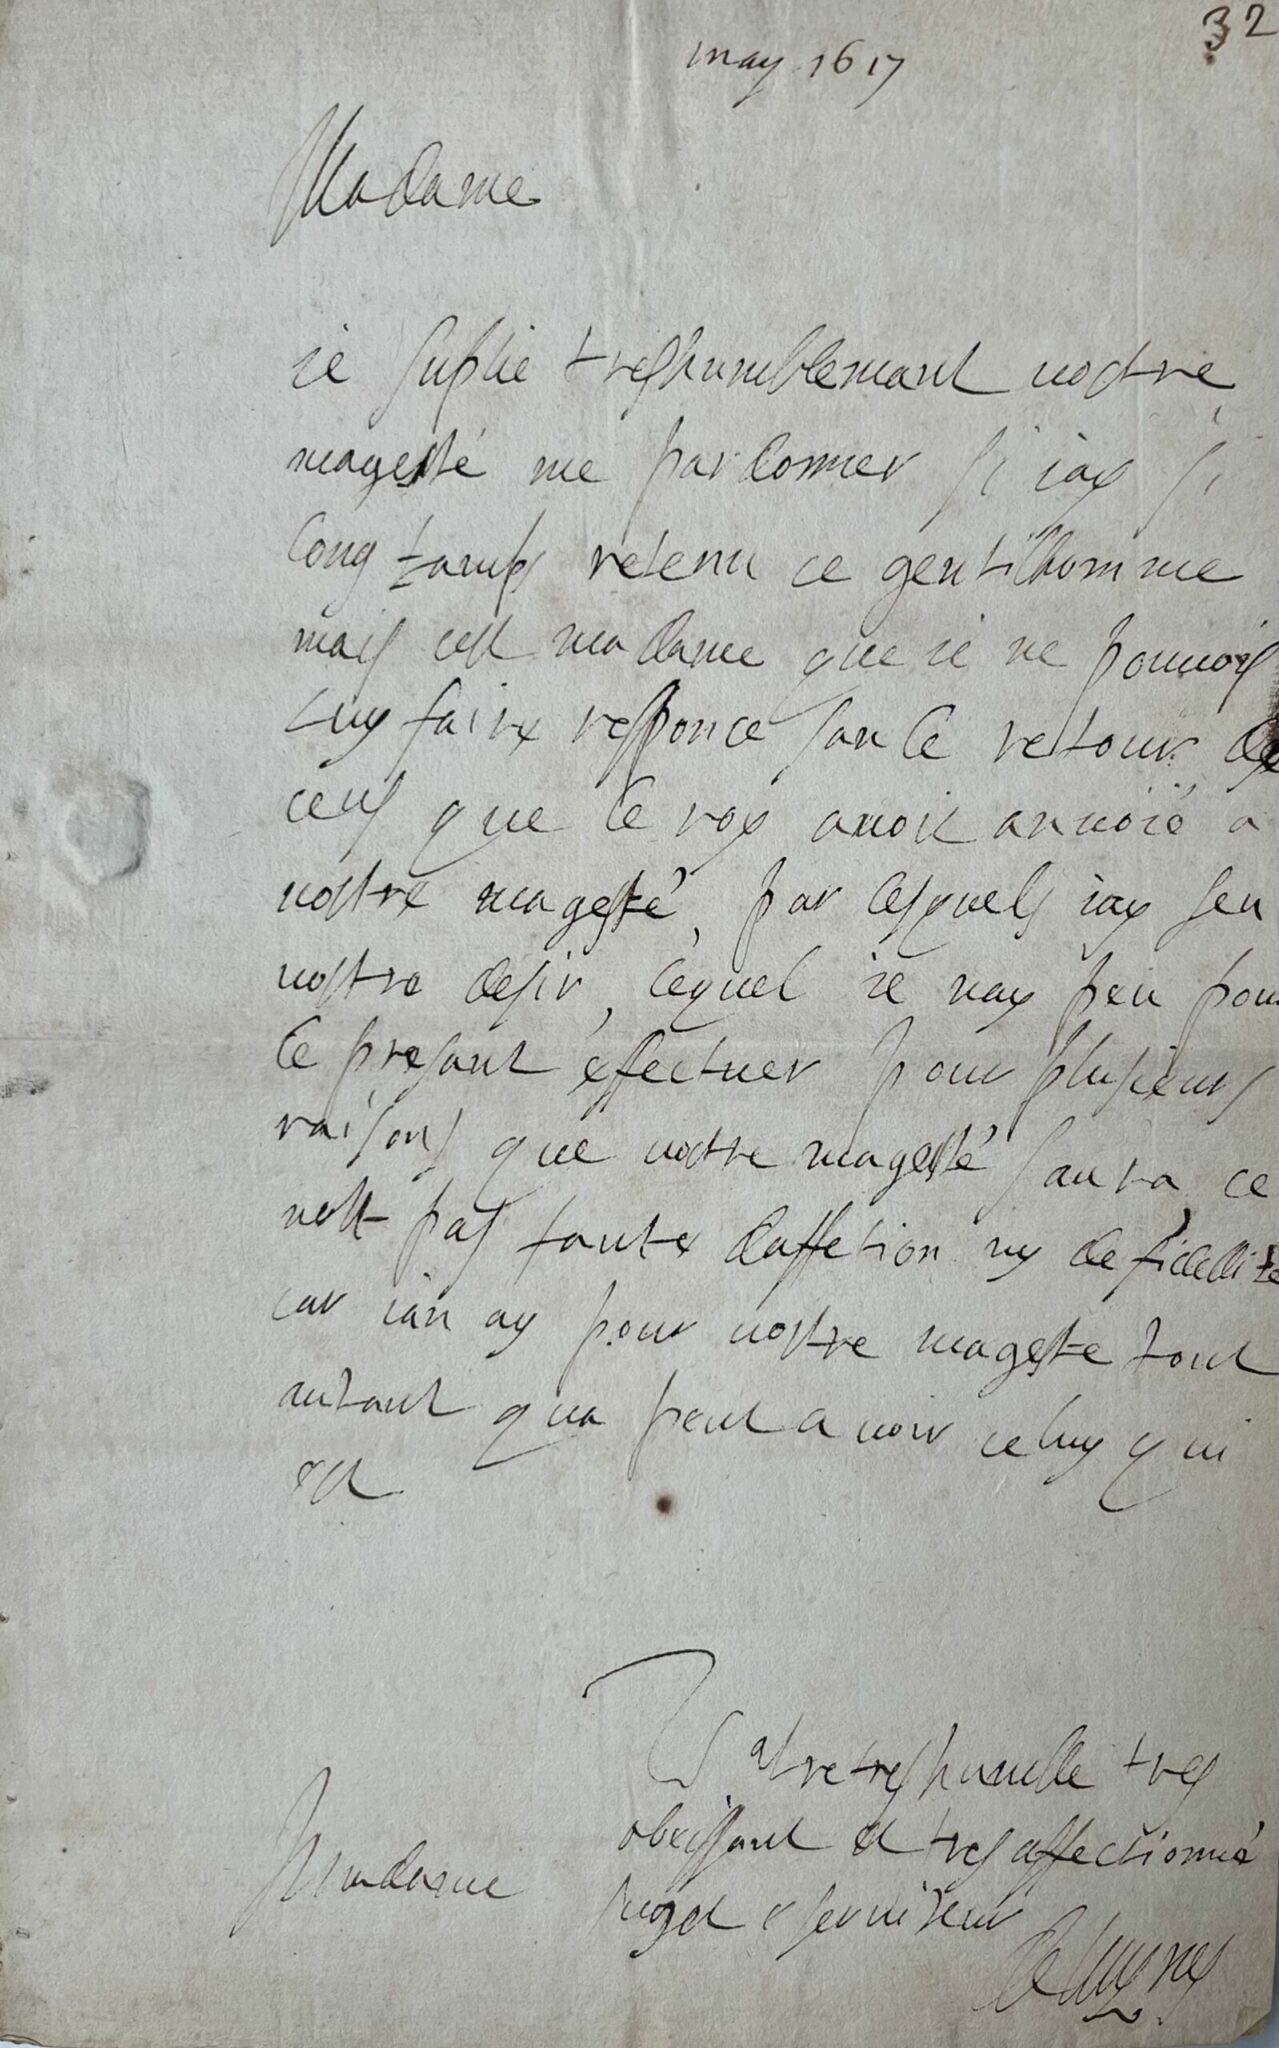 32
may 1617
Madame
ie suplie treshumblemant vostre
magesté me pardonner si iay si
long tamps retenu ce gentilhomme
mais cest madame que ie ne pouvois
luy faire responce san le retour de
ceus que le roy avoit anvoié a
vostre magesté, par lesquels iay seu
vostre desir, lequel ie nay peu pour
le presant effectuer pour plusieurs
raisons que vostre magesté saura, ce
nest pas faute daffetion ny de fidellité
car ian ay pour vostre magesté tout
autant qua peut avoir celuy qui
est
Vostre treshumble tres
obeissant et tres affectionné
Madame
suget e serviteur
De Luynes